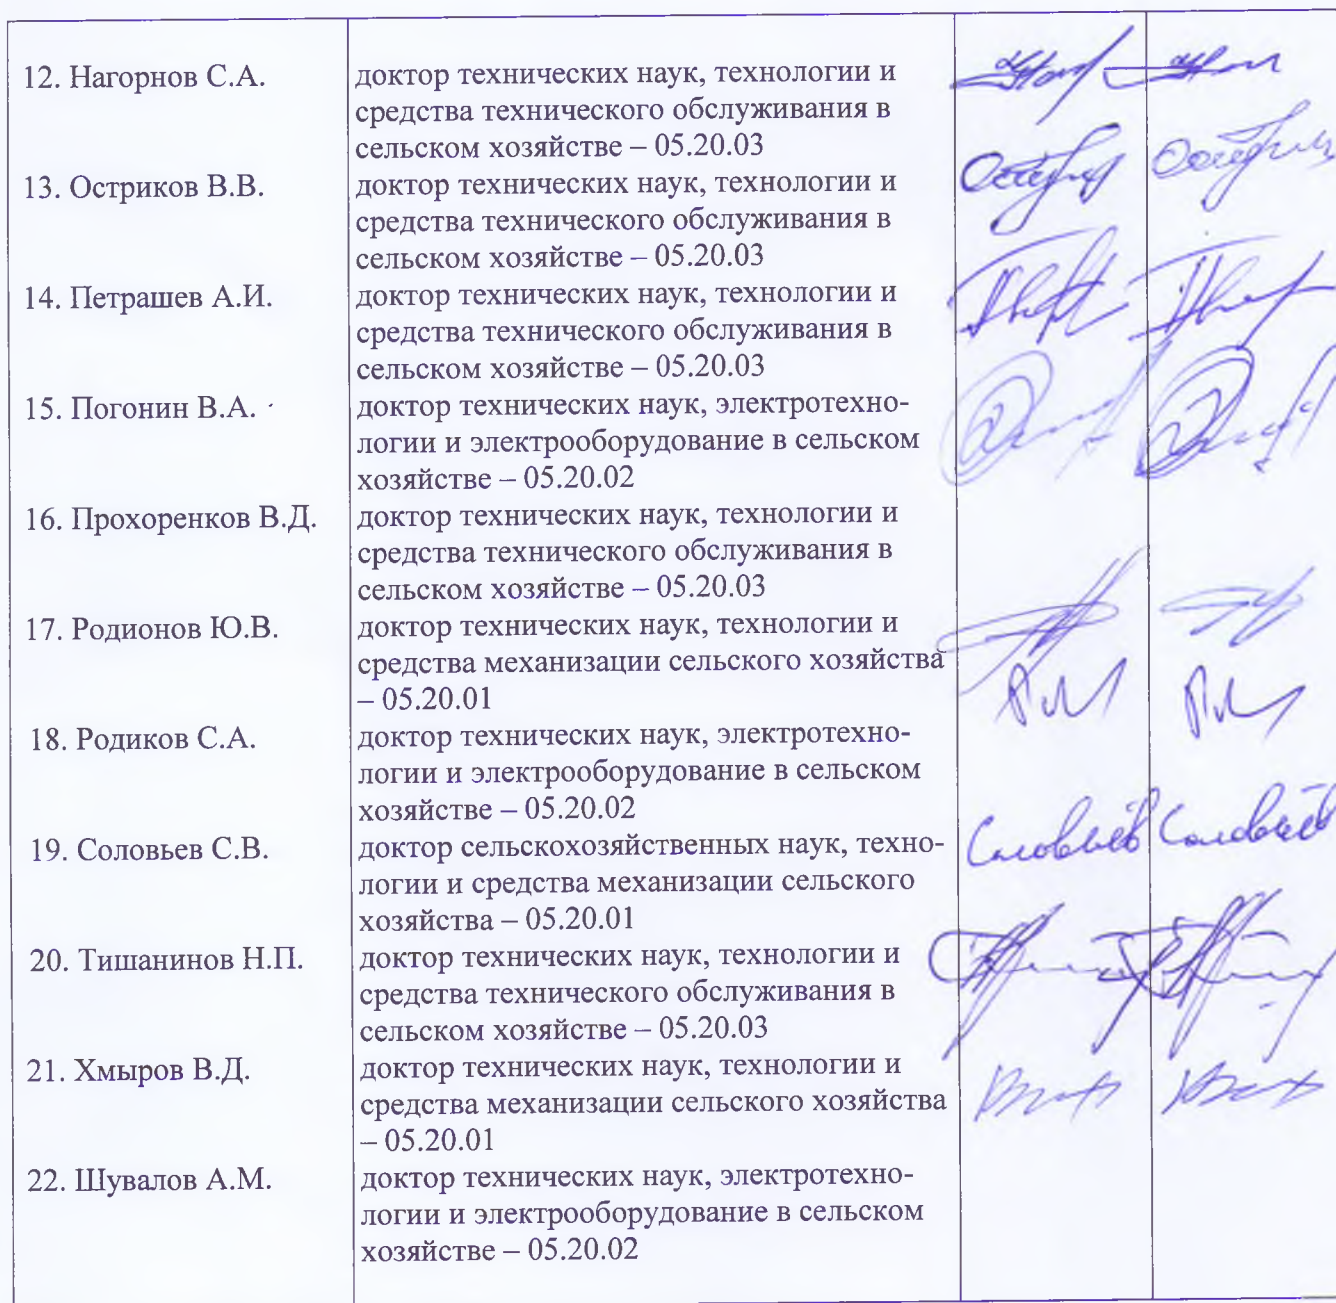 12. Нагорнов С.А.
доктор технических наук, технологии и
средства технического обслуживания в
сельском хозяйстве – 05.20.03
13. Остриков В.В.
доктор технических наук, технологии и
средства технического обслуживания в
сельском хозяйстве – 05.20.03
14. Петрашев А.И.
доктор технических наук, технологии и
средства технического обслуживания в
сельском хозяйстве – 05.20.03
15. Погонин В.А.
доктор технических наук, электротехно-
логии и электрооборудование в сельском
хозяйстве – 05.20.02
16. Прохоренков В.Д.
доктор технических наук, технологии и
средства технического обслуживания в
сельском хозяйстве – 05.20.03
17. Родионов Ю.В.
доктор технических наук, технологии и
средства механизации сельского хозяйства
– 05.20.01
18. Родиков С.А.
доктор технических наук, электротехно-
логии и электрооборудование в сельском
хозяйстве – 05.20.02
19. Соловьев С.В.
доктор сельскохозяйственных наук, техно-
логии и средства механизации сельского
хозяйства – 05.20.01
Соловьёв Соловьёв
20. Тишанинов Н.П.
доктор технических наук, технологии и
средства технического обслуживания в
сельском хозяйстве – 05.20.03
21. Хмыров В.Д.
доктор технических наук, технологии и
средства механизации сельского хозяйства
– 05.20.01
22. Шувалов А.М.
доктор технических наук, электротехно-
логии и электрооборудование в сельском
хозяйстве – 05.20.02